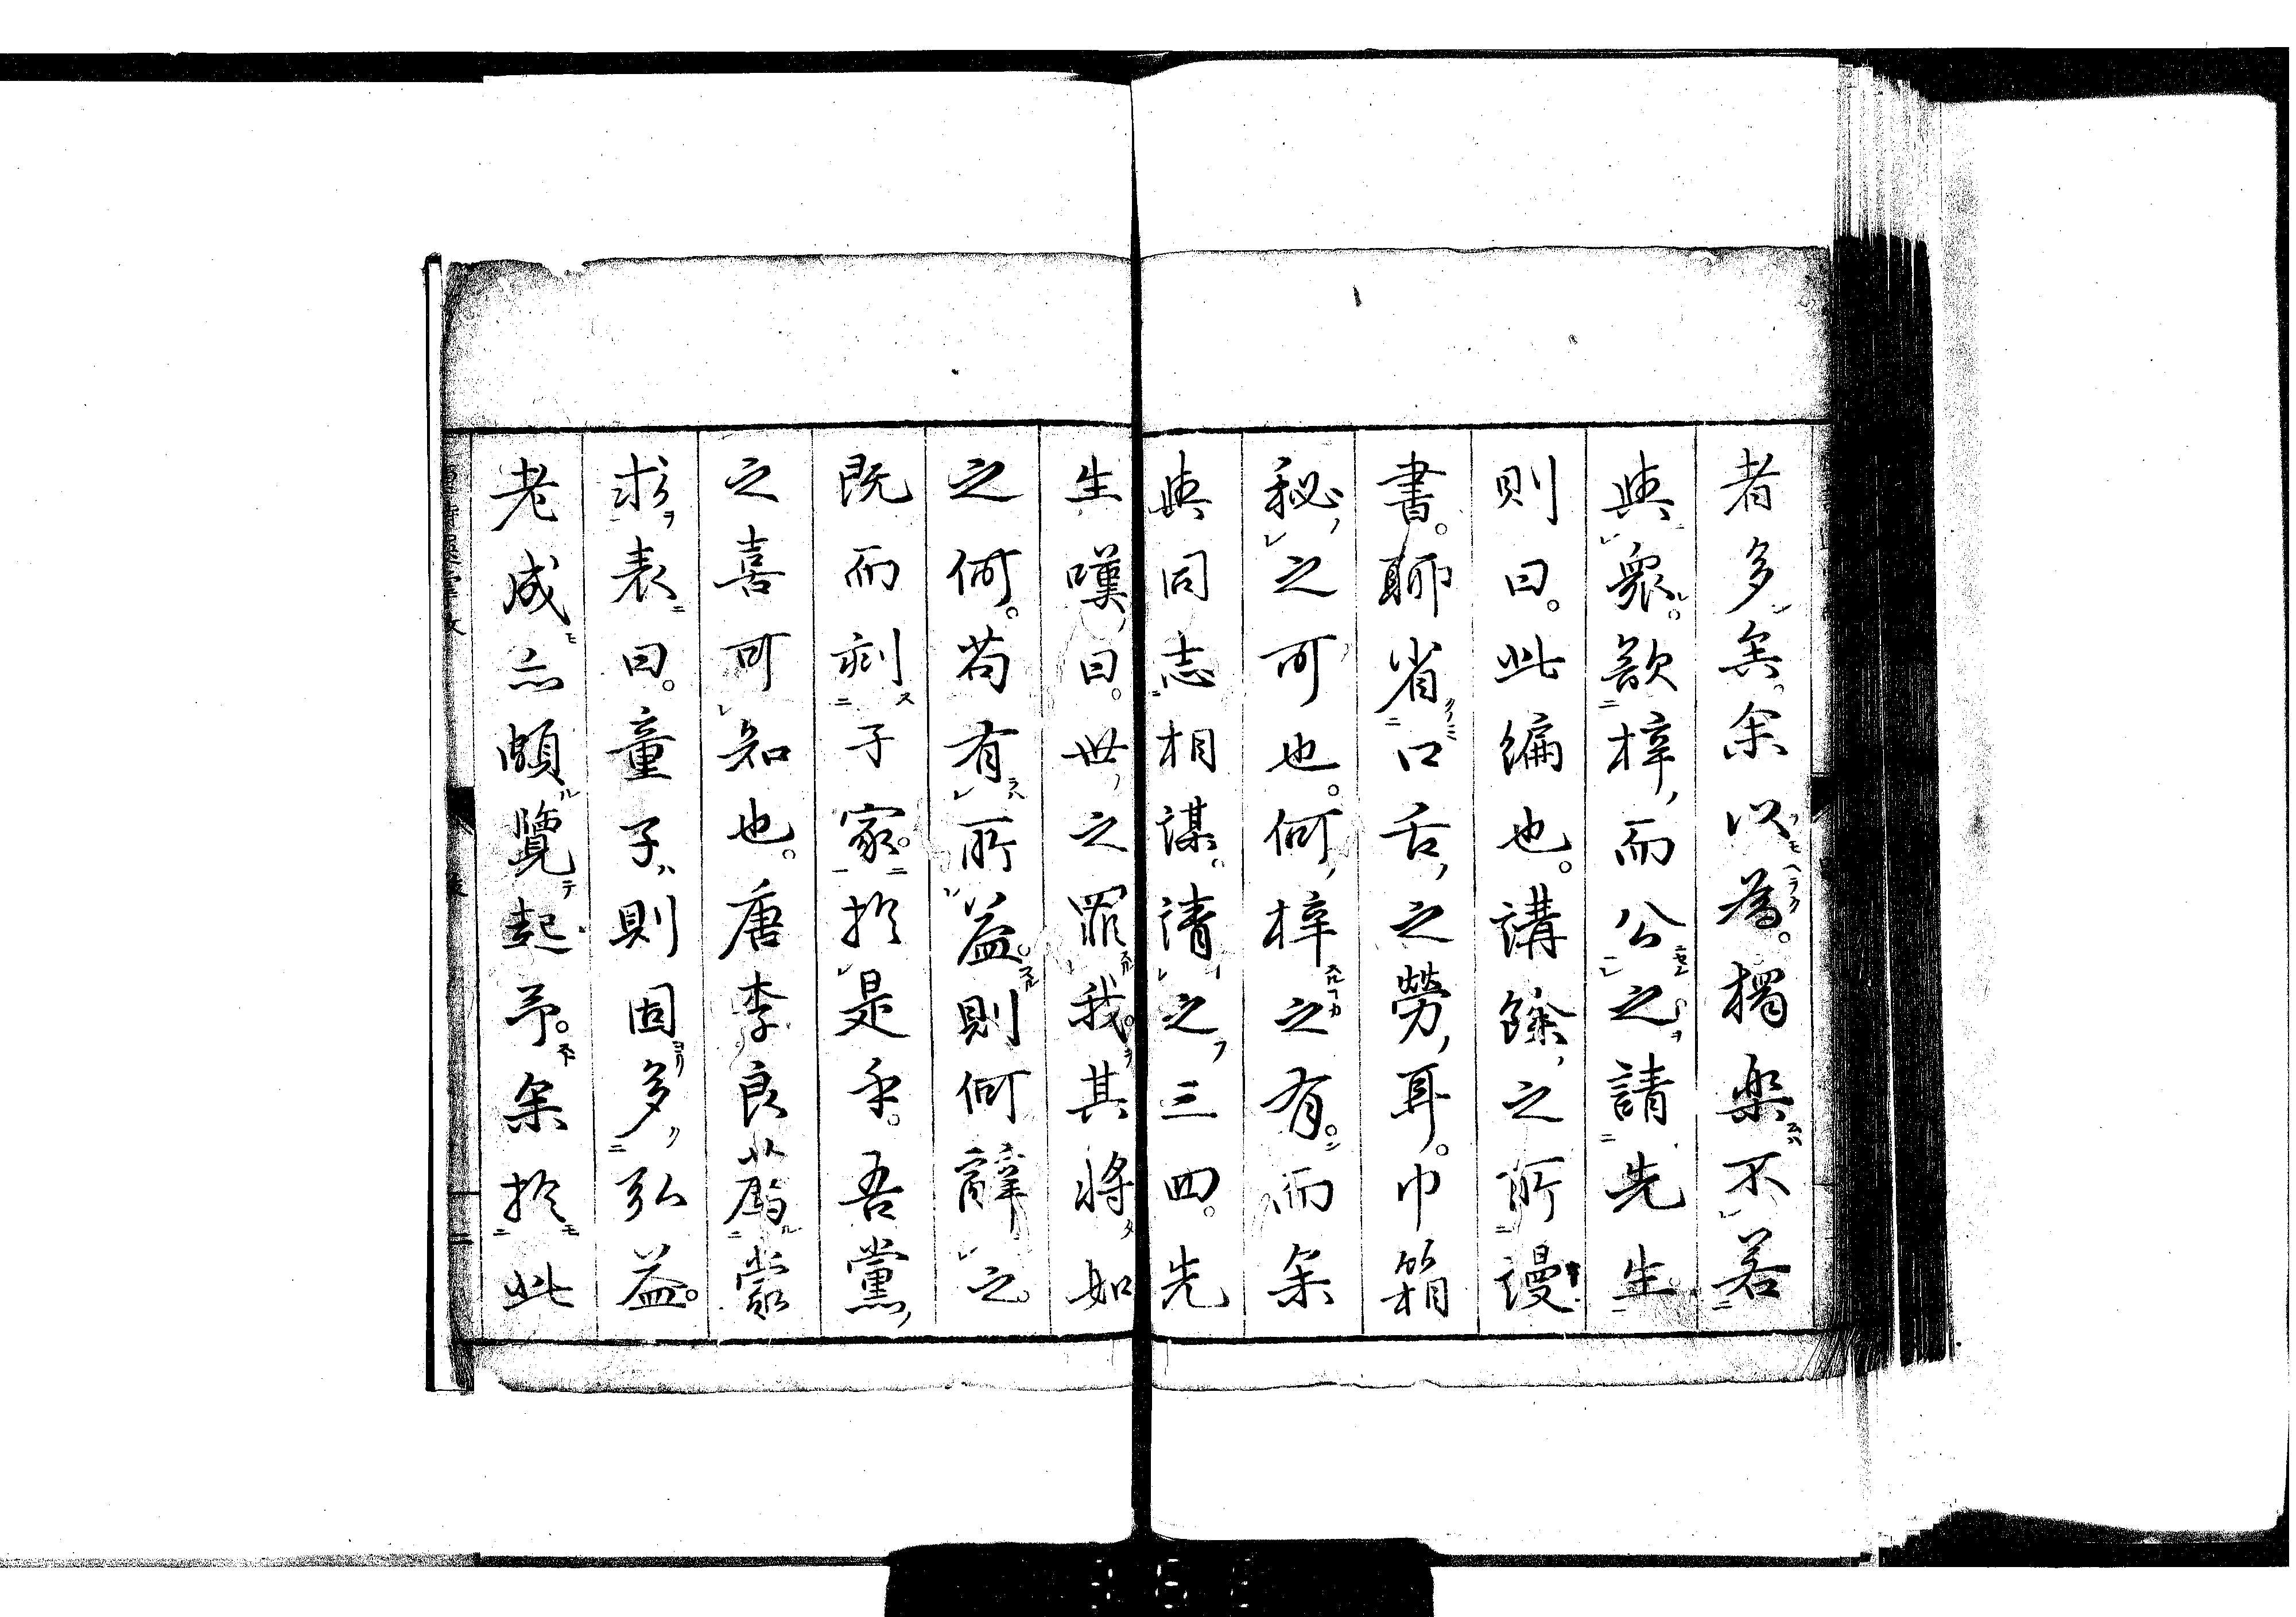 者多矣。余以為。獨樂不若
與衆。欲梓而公之。請先生
則曰。此編也。講餘之所謾
書。聊省口舌之勞耳。巾箱
秘之可也。何梓之有。而余
與同志相謀。請之三四。先
生嘆曰。世之罪我。其將如
之何。苟有所益。則何辭之。
既而刻于家。於是乎。吾黨
之喜可知也。唐李良薦蒙
求表曰。童子則固多弘益。
老成亦頗覽起予。余於此